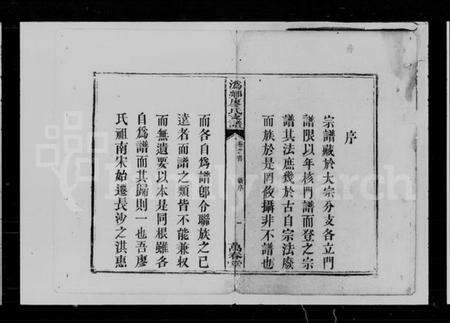 序
宗譜藏於大宗分支各立門
譜限以年核門譜而登之宗
譜其法庶幾於古自宗法廢
而族於是罔攸攝非不譜也
溈鄉廖氏支譜
卷首
序
一
萬春堂
而各自為譜卽合聯族之已
遠者而譜之類皆不能兼收
而無遺要以本是同根雖各
自為譜而其歸則一也吾廖
氏祖南宋始遷長沙之淇惠